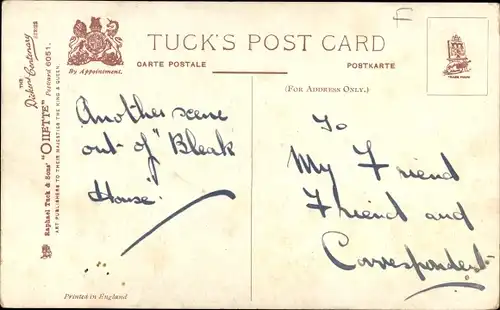 THE
Dickens Centenary
SERIES
"OILETTE" Postcard 6051.
Raphael Tuck & Sons'
ART PUBLISHERS TO THEIR MAJESTIES THE KING & QUEEN.
By Appointment.
TUCK'S POST CARD
CARTE POSTALE
POSTKARTE
(FOR ADDRESS ONLY.)
F
TRADE MARK
Another scene
out of "Bleak
House".
To
My Friend
Friend and
Correspondent
Printed in England